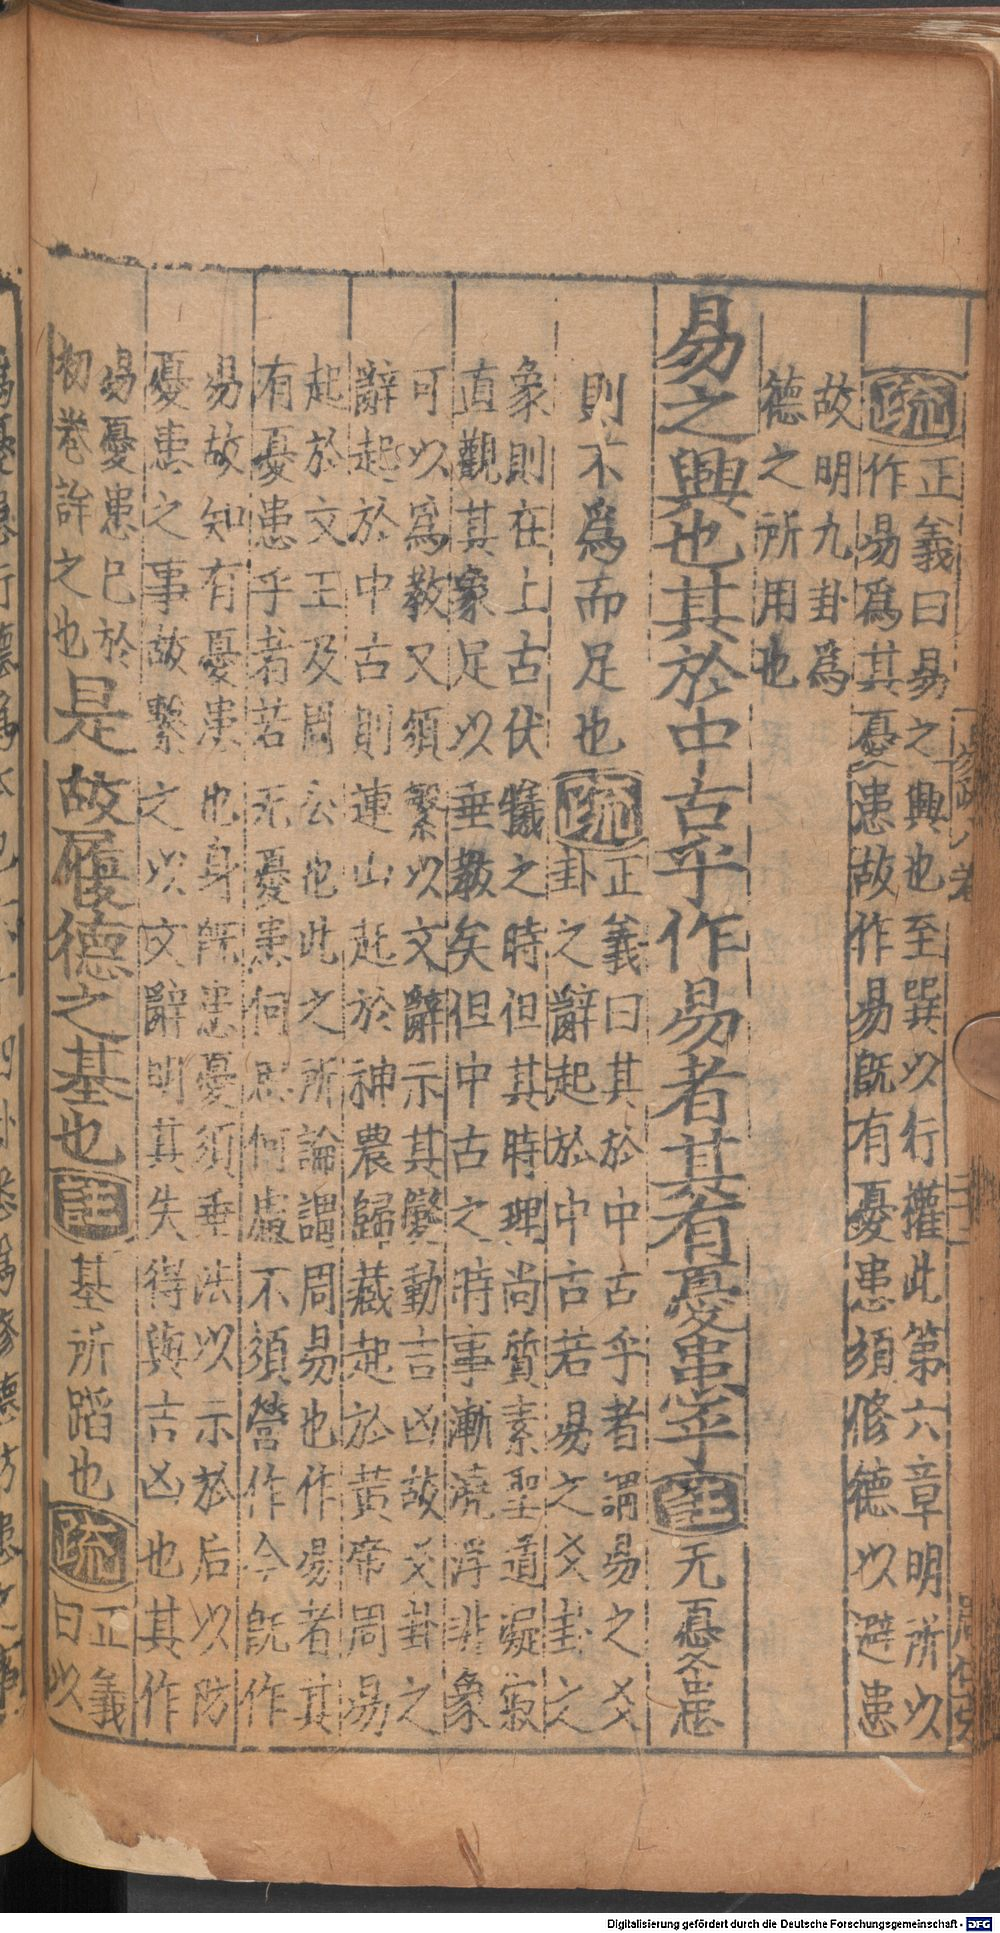 疏 正義曰易之興也至巽以行權此第六章明所以
作易爲其憂患故作易旣有憂患須修德以避患
故明九卦爲
德之所用也
易之興也其於中古乎作易者其有憂患乎 註 无憂患
則不爲而足也 疏 正義曰其於中古乎者謂易之爻
卦之辭起於中古若易之爻卦之
象則在上古伏犧之時但其時理尚質素聖道凝寂
直觀其象足以垂教矣但中古之時事漸澆浮非象
可以爲教又須繫以文辭示其變動吉凶故爻卦之
辭起於中古則連山起於神農歸藏起於黃帝周易
起於文王及周公也此之所論謂周易也作易者其
有憂患乎者若无憂患何思何慮不須營作今旣作
易故知有憂患也身旣患憂須垂法以示於后以防
憂患之事故繫之以文辭明其失得與吉凶也其作
易憂患已於
初卷詳之也是故履德之基也 註 基所蹈也 疏 正義
曰以
Digitalisierung gefördert durch die Deutsche Forschungsgemeinschaft - DFG